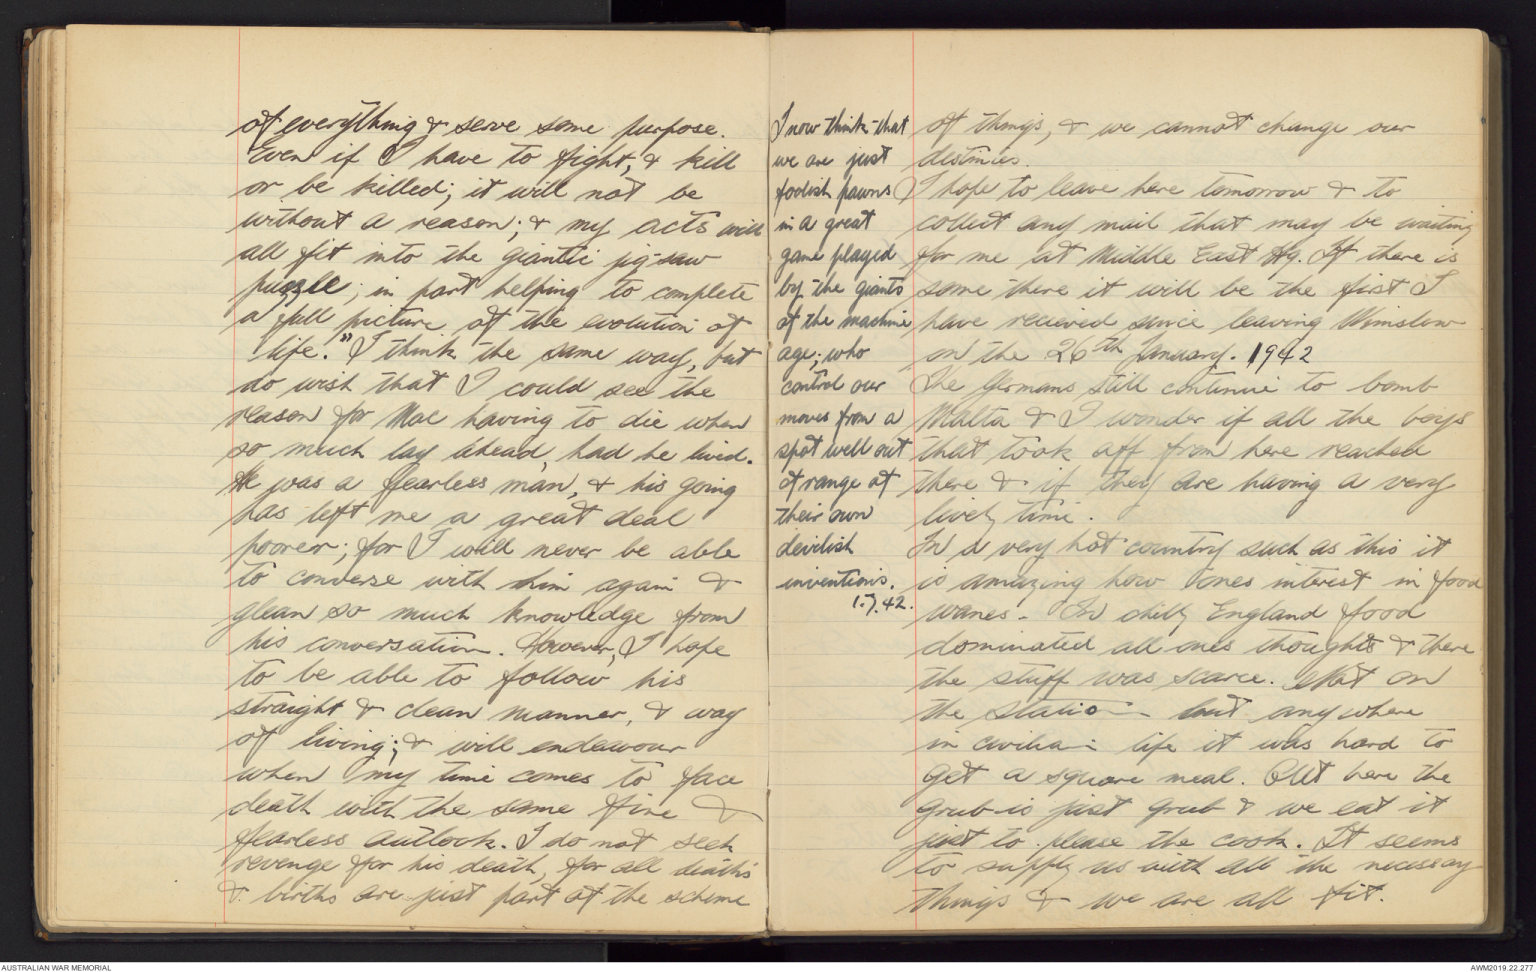 of everything & serve some purpose.
Even if I have to fight, & kill
or be killed; it will not be
without a reason; & my acts will
all fit into the giantic jig-saw
puzzle; in part helping to complete
a full picture of the evolution of
life." I think the same way, but
do wish that I could see the
reason for Mac having to die when
so much lay ahead, had he lived.
He was a fearless man, & his going
has left me a great deal
poorer; for I will never be able
to converse with him again &
glean so much knowledge from
his conversation. However, I hope
to be able to follow his
straight & clean manner, & way
of living; & will endeavour
when my time comes to face
death with the same fine &
fearless outlook. I do not seek
revenge for his death, for all deaths
& births are just part of the scheme
I now think that
we are just
foolish pawns
in a great
game played
by the giants
of the machine
age; who
control our
moves from a
spot well out
of range of
their own
devilish
inventions.
1.7.42.
of things, & we cannot change our
destinies.
I hope to leave here tomorrow & to
collect any mail that may be waiting
for me at Middle East Hq. If there is
some there it will be the first I
have recieved since leaving Winslow
on the 26th January. 1942
The Germans still continue to bomb
Malta & I wonder if all the boys
that took off from here reached
there & if they are having a very
lively time.
In a very hot country such as this it
is amazing how ones interest in food
wanes. In chilly England food
dominated all ones thoughts & there
the stuff was scarce. Not on
the station but anywhere
in civilian life it was hard to
get a square meal. Out here the
grub is just grub & we eat it
just to please the cook. It seems
to supply us with all the necessay
things & we are all fit.
AUSTRALIAN WAR MEMORIAL
AWM2019.22.277